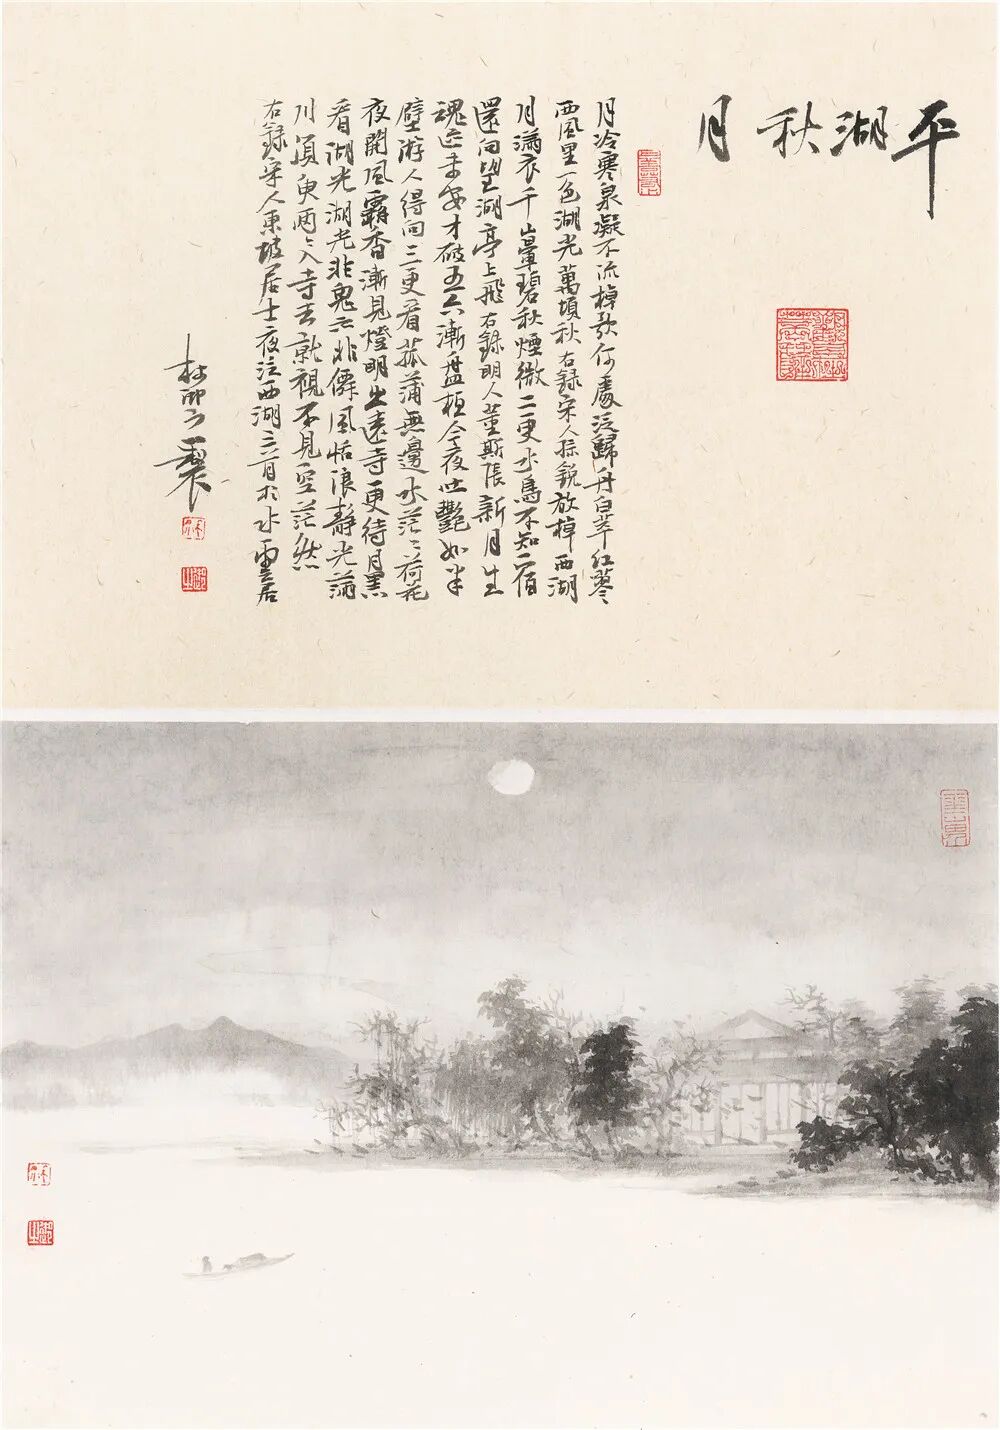 平湖秋月
月冷寒泉凝不流棹歌何處泛歸舟白苹红蓼
西風里一色湖光萬頃秋右録宋人孫銳放棹西湖
月滿衣千山暈碧秋煙微二更水鳥不知宿
還向望湖亭上飛右録明人董斯張新月生
魂迹未安才破五六漸盤桓今夜吐艷如半
壁游人得向三更看菰蒲無邊水茫〻荷花
夜開風露香漸見燈明出遠寺更待月黑
看湖光湖光非鬼亦非僊風恬浪靜光滿
川須臾兩〻入寺去就視不見空茫然
右録宋人東坡居士夜泛西湖三首於水雲居